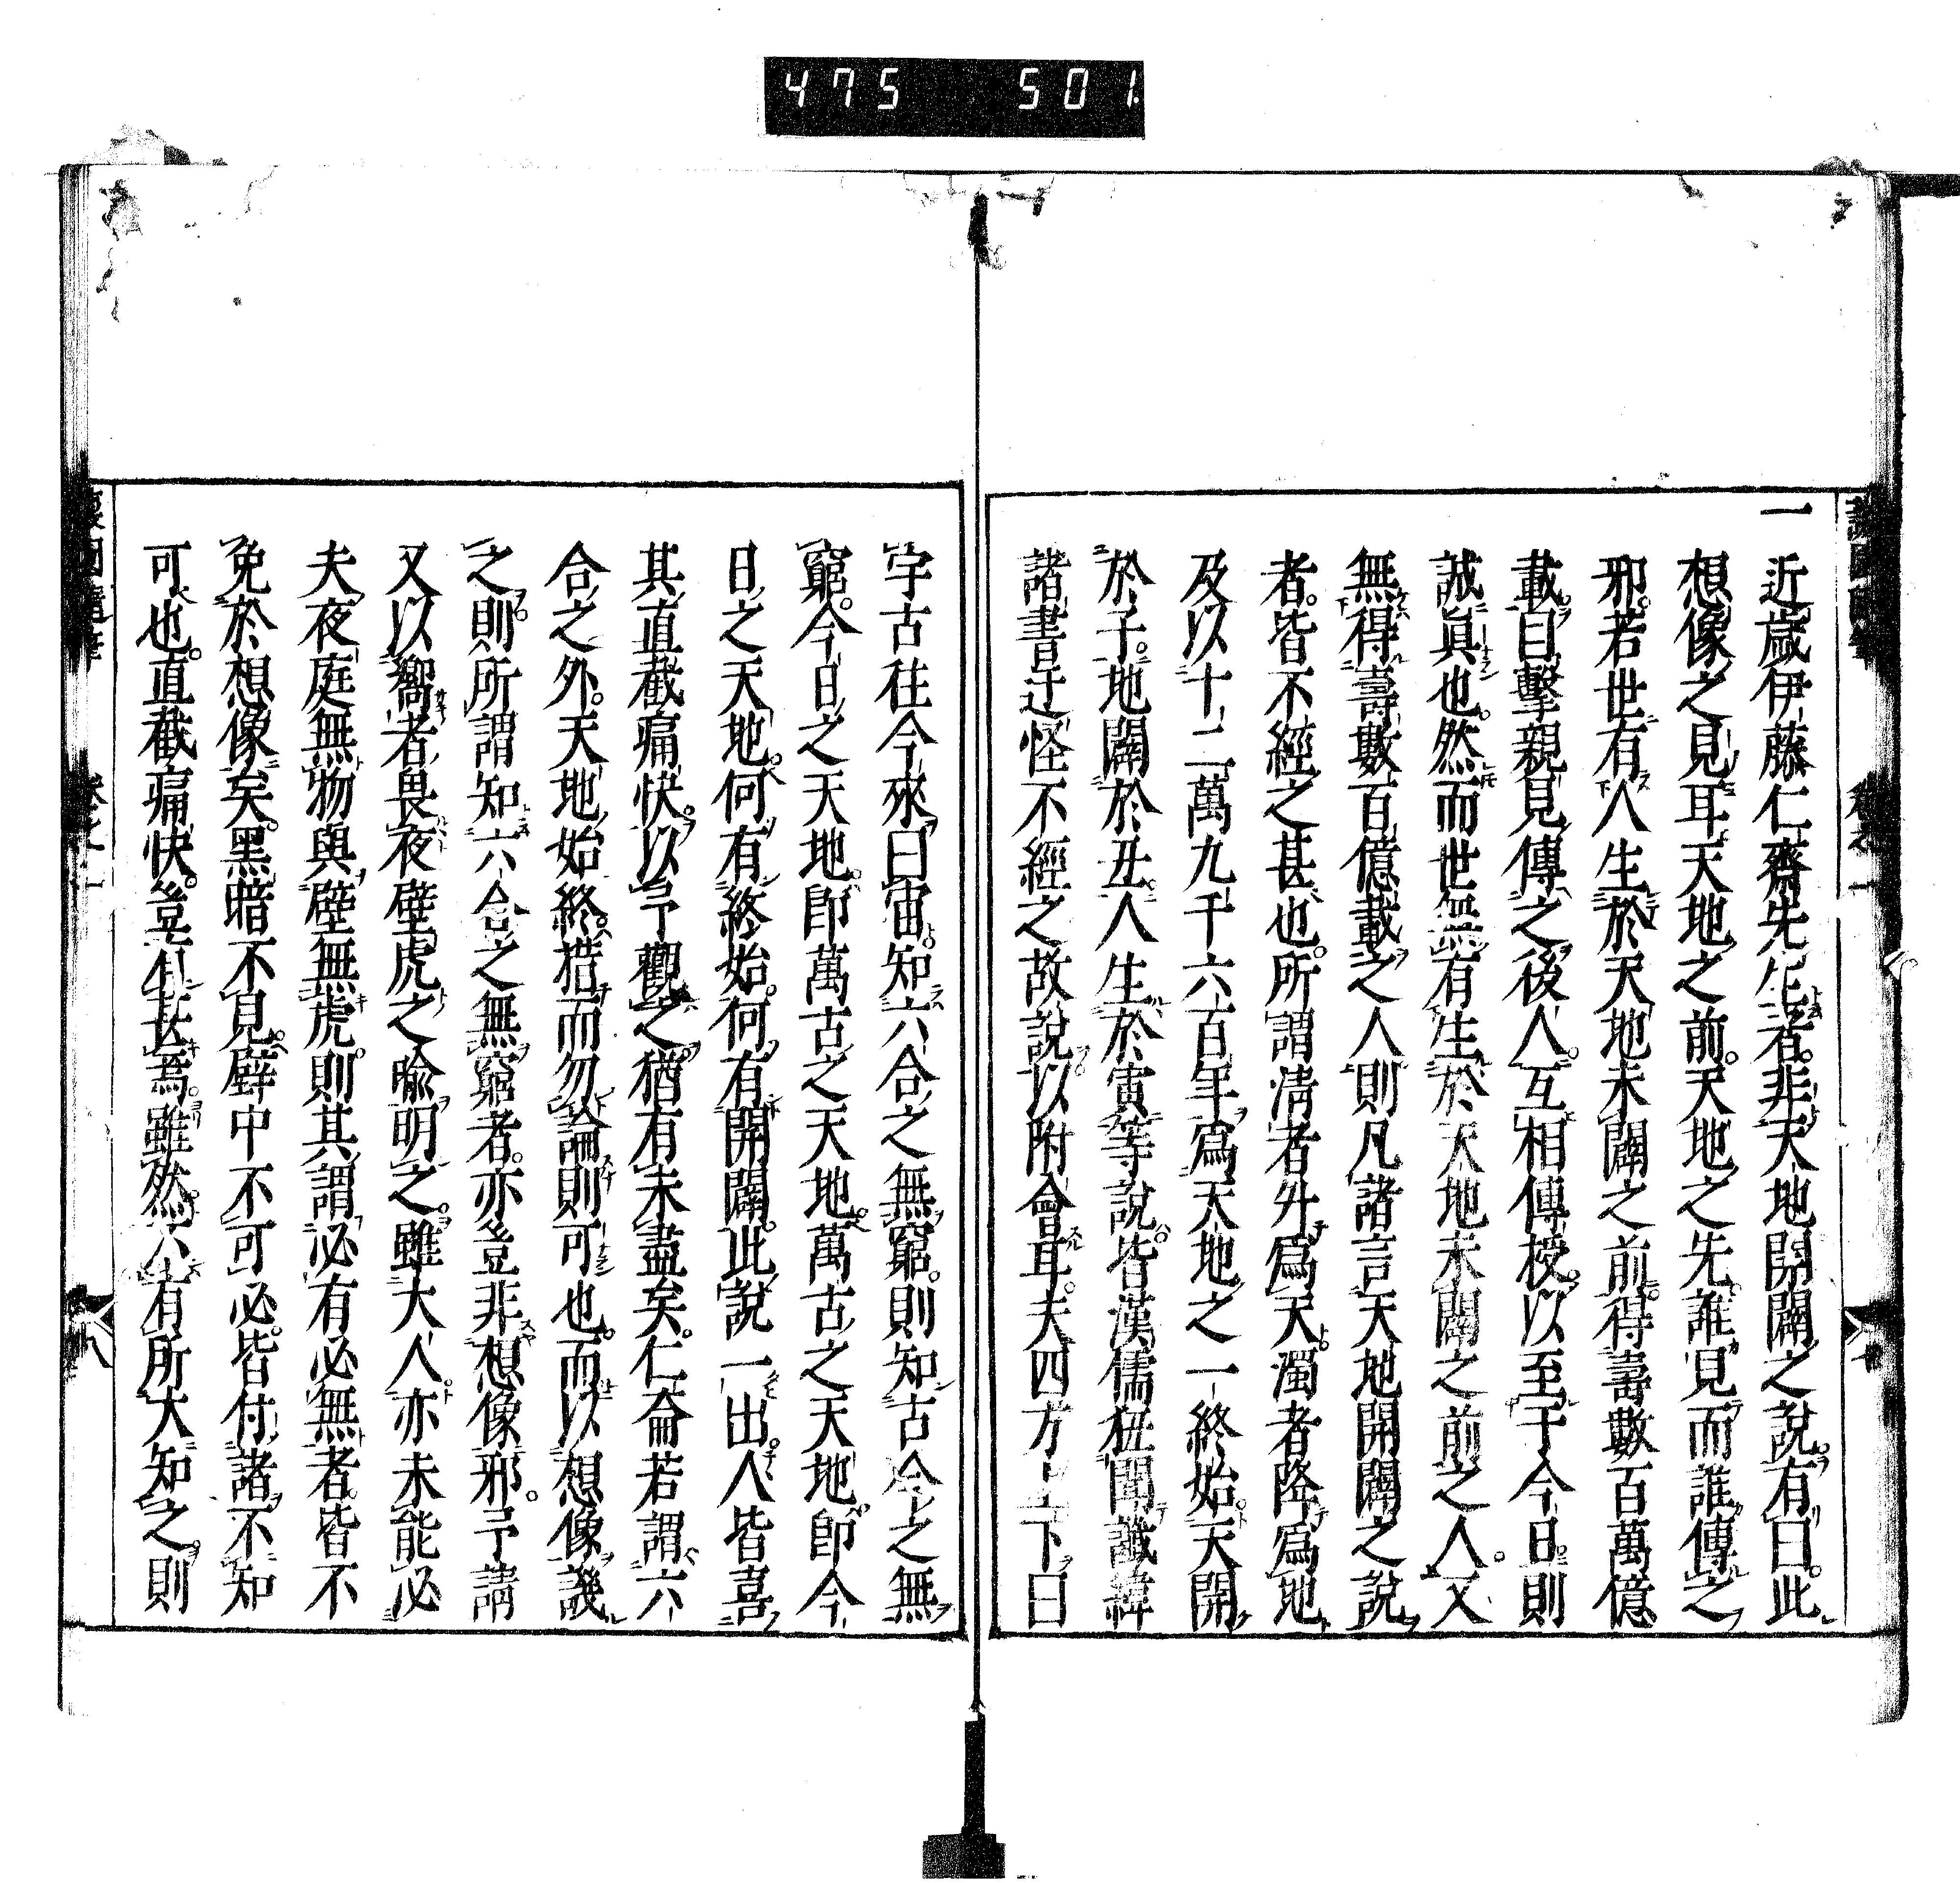 475 501
一近歲伊藤仁齋先生者非天地開闢之說有曰此
想像之見耳天地之前天地之先誰見而誰傳之
邪若世有人生於天地未闢之前得壽數百萬億
載目擊親見傳之後人互相傳授以至于今日則
誠眞也然而世無有生於天地未闢之前之人又
無得壽數百億載之人則凡諸言天地開闢之說
者皆不經之甚也所謂淸者升爲天濁者降爲地
及以十二萬九千六百年爲天地之一終始天開
於子地闢於丑人生於寅等說皆漢儒狃聞讖緯
諸書迂怪不經之故說以附會耳夫四方上下曰
宇古往今來曰宙知六合之無窮則知古今之無
窮今日之天地卽萬古之天地萬古之天地卽今
日之天地何有終始何有開闢此說一出人皆喜
其直截痛快以予觀之猶有未盡矣仁齋若謂六
合之外天地始終措而勿論則可也而以想像譏
之則所謂知六合之無窮者亦豈非想像邪予請
又以嚮者畏夜壁虎之喩明之雖大人亦未能必
夫夜庭無物與壁無虎則其謂必有必無者皆不
免於想像矣黑暗不見壁中不可必皆付諸不知
可也直截痛快豈有甚焉雖然人有所大知之則
卷之一